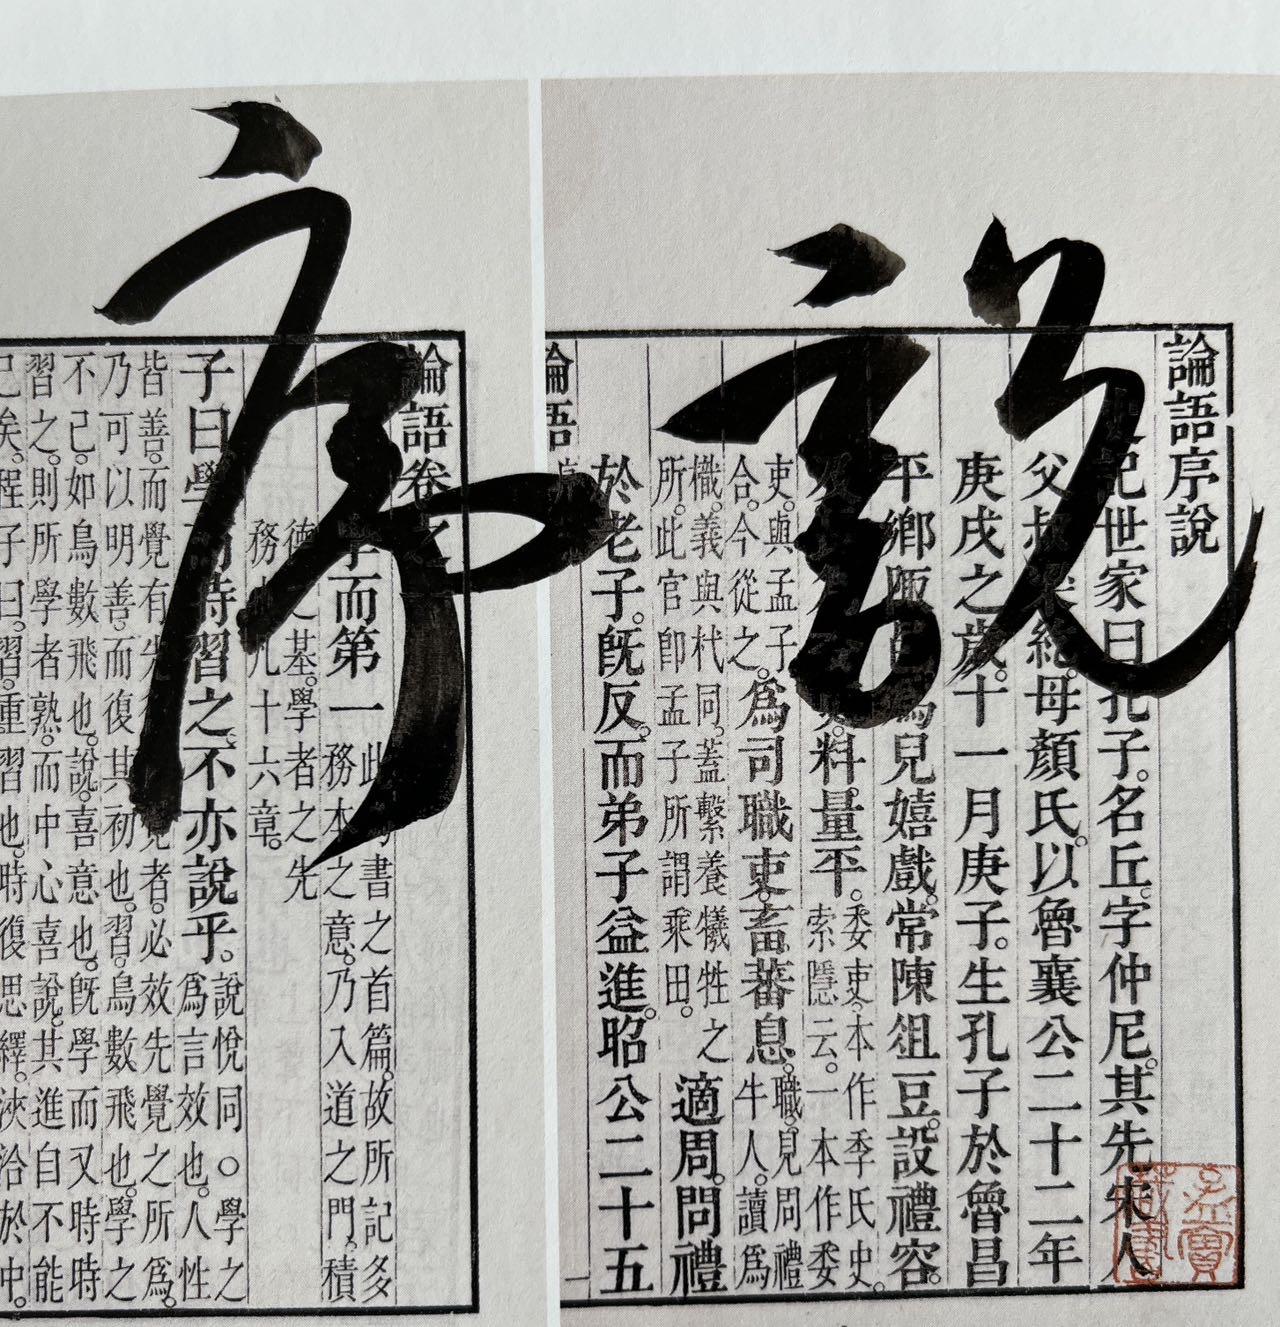 序說
論語序說
記世家曰。孔子。名丘。字仲尼。其先宋人
父叔梁紇。母顏氏。以魯襄公二十二年
庚戌之歲。十一月庚子。生孔子於魯昌
平鄉陬邑。爲兒嬉戲。常陳俎豆。設禮容。
料量平。
委吏。本作季氏史。
索隱云。一本作委
吏。與孟子
合。今從之。
爲司職吏。畜蕃息。
職。見周禮
牛人。讀爲
樴。義與杙同。蓋繫養犧牲之
所。此官卽孟子所謂乘田。
適周。問禮
於老子。旣反。而弟子益進。昭公二十五
論語
論語卷之一
學而第一
此爲書之首篇。故所記多
務本之意。乃入道之門。積
德之基。學者之先
務也。凡十六章。
子曰。學而時習之。不亦說乎。
說悅同。○學之
爲言效也。人性
皆善。而覺有先後。覺者。必效先覺之所爲。
乃可以明善。而復其初也。習。鳥數飛也。學之
不已。如鳥數飛也。說。喜意也。旣學而又時時
習之。則所學者熟。而中心喜說。其進自不能
已矣。程子曰。習。重習也。時復思繹。浹洽於中。